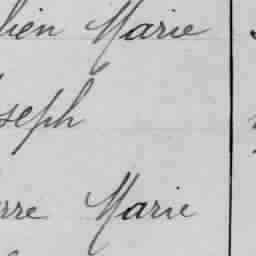 lien Marie
seph
rre Marie